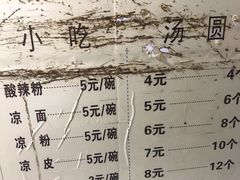 小吃 汤圆
酸辣粉 5元/碗 4元 4个
凉面 5元/碗 5元 6个
凉粉 5元/碗 6元 8个
凉皮 5元/碗 7元 10个
8元 12个